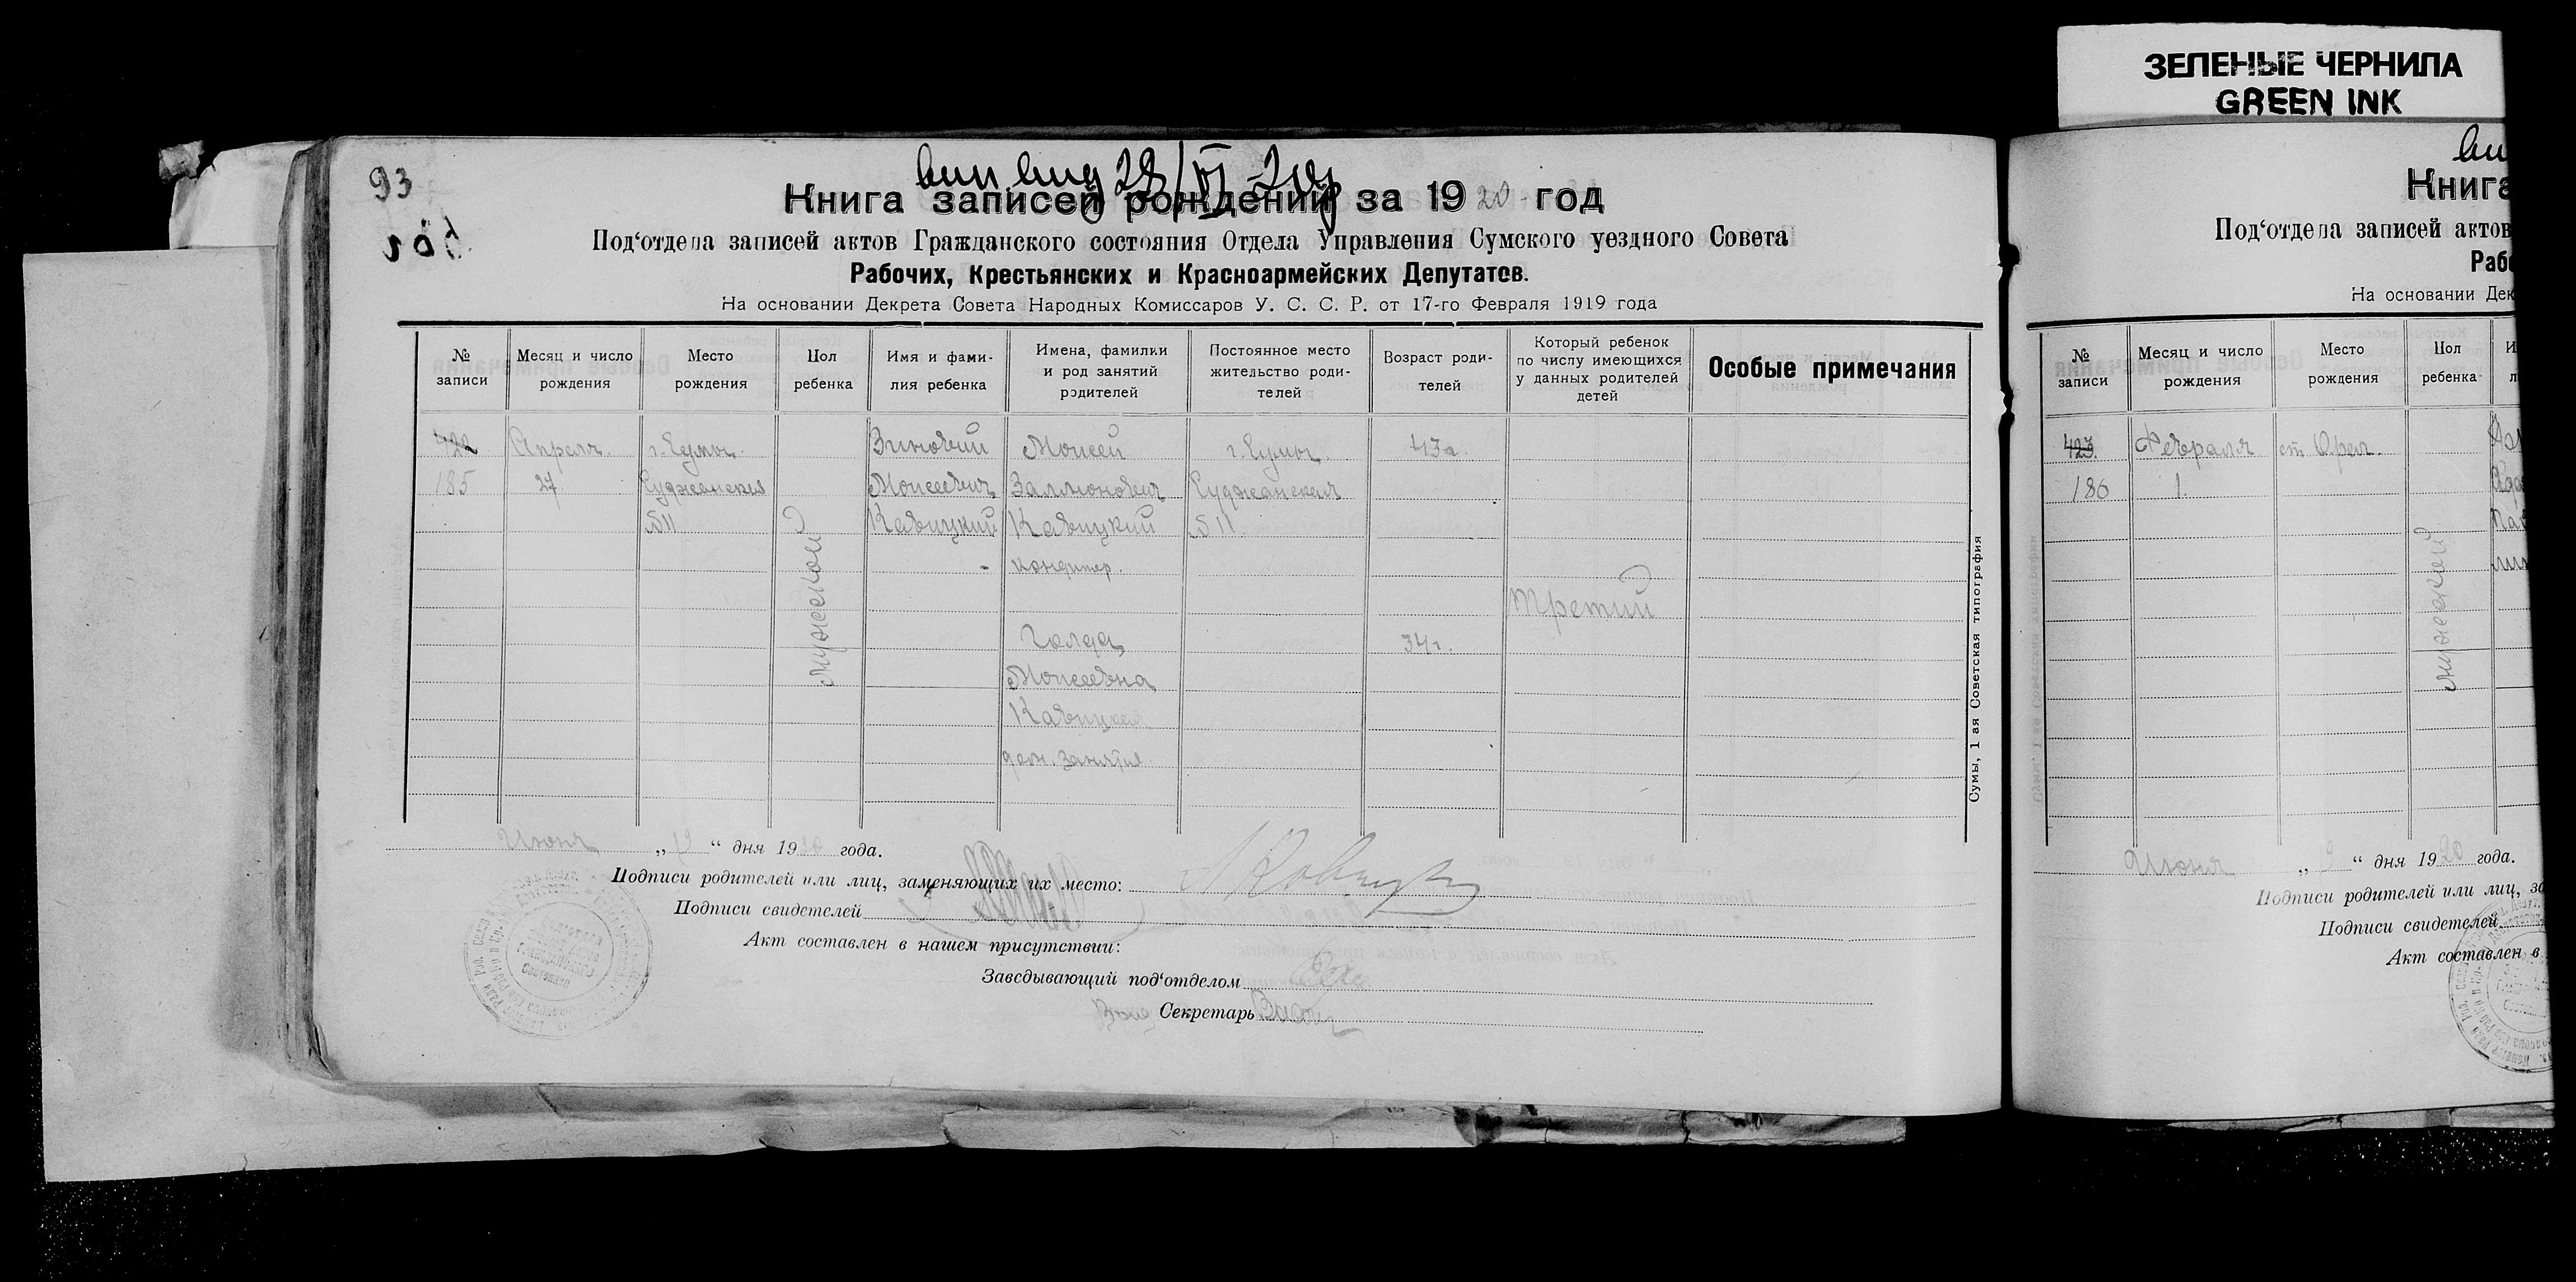 ЗЕЛЕНЫЕ ЧЕРНИЛА
GREEN INK
93
28/VI
Книга записей рождений за 1920 год
Под‘отдела записей актов Гражданского состояния Отдела Управления Сумского уездного Совета
Рабочих, Крестьянских и Красноармейских Депутатов.
На основании Декрета Совета Народных Комиссаров У. С. С. Р. от 17-го Февраля 1919 года
№ записи
Месяц и число рождения
Место рождения
Пол ребенка
Имя и фами-
лия ребенка
Имена, фамилии
и род занятий
родителей
Постоянное место
жительство роди-
телей
Возраст роди-
телей
Который ребенок
по числу имеющихся
у данных родителей
детей
Особые примечания
422 Апреля г. Сумы Зиновий Моисей г. Сумы 43 г.
185 27 Суджанская Моисеевич Залмонович Суджанская
№11 Кавицкий Кавицкий №11
кондитер.
мужской
Третий
Голда 34 г.
Моисеевна
Кавицкая
дом. занятия
Сумы, 1 ая Советская типография
Июня „ 9 “ дня 1920 года.
Подписи родителей или лиц, заменяющих их место:
Подписи свидетелей
Акт составлен в нашем присутствии:
Заведывающий под‘отделом
Секретарь
Книга
Под‘отдела записей актов
Рабо
На основании Дек
№ записи
Месяц и число рождения
Место рождения
Пол ребенка
423 Февраля ст. Орел
186 1.
мужской
Июня „ 9 “ дня 1920 года.
Подписи родителей или лиц, за
Подписи свидетелей
Акт составлен в